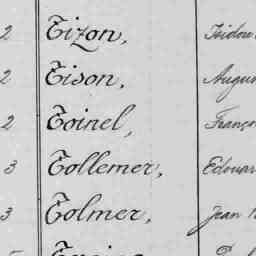 2 Tizon, Isidor
2 Tison, Augus
2 Toinel, Franço
3 Tollemer, Edouar
3 Tolmer, Jean